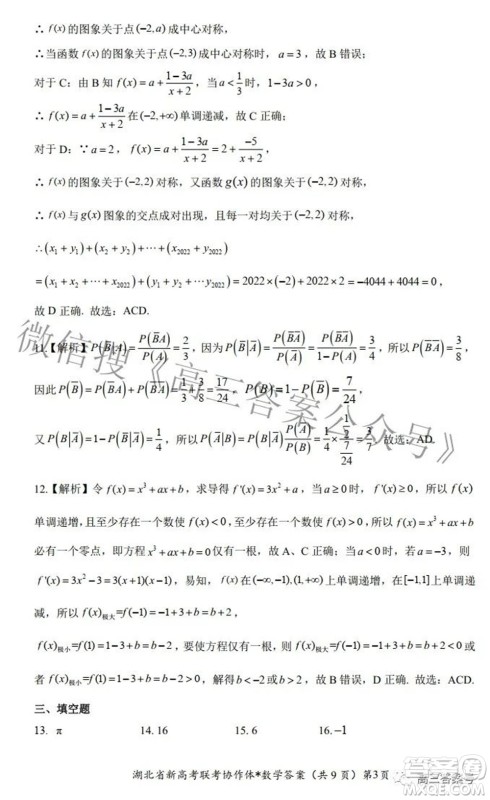 ∴ f(x) 的图象关于点(-2,a)成中心对称,
∴当函数 f(x) 的图象关于点(-2,3)成中心对称时, a=3, 故 B 错误;
对于 C: 由 B 知 f(x)=a+(1-3a)/(x+2), 当 a<1/3 时, 1-3a>0,
∴ f(x)=a+(1-3a)/(x+2) 在(-2,+∞)单调递减, 故 C 正确;
对于 D: ∵ a=2, f(x)=a+(1-3a)/(x+2)=2+(-5)/(x+2),
∴ f(x) 的图象关于(-2,2)对称, 又函数 g(x) 的图象关于(-2,2)对称,
∴ f(x) 与 g(x) 图象的交点成对出现, 且每一对均关于(-2,2)对称,
∴(x₁+y₁)+(x₂+y₂)+⋯+(x₂₀₂₂+y₂₀₂₂)
=(x₁+x₂+⋯+x₂₀₂₂)+(y₁+y₂+⋯+y₂₀₂₂)=2022×(-2)+2022×2=-4044+4044=0,
故 D 正确. 故选: ACD.
11【解析】P(B̅|A)=P(B̅A)/P(A)=2/3, 因为 P(B̅|A̅)=P(B̅A̅)/P(A̅)=P(B̅A̅)/(1-P(A))=3/4, 所以 P(B̅A̅)=3/8,
因此 P(B̅)=P(B̅A)+P(B̅A̅)=1/3+3/8=17/24, P(B)=1-P(B̅)=7/24,
又 P(B|A̅)=1-P(B̅|A̅)=1/4, 所以 P(A̅|B)=P(B|A̅)·P(A̅)/P(B)=1/4×(1/2)/(7/24)=3/7, 故选: AD.
12.【解析】令 f(x)=x³+ax+b, 求导得 f'(x)=3x²+a, 当 a≥0 时, f'(x)≥0, 所以 f(x)
单调递增, 且至少存在一个数使 f(x)<0, 至少存在一个数使 f(x)>0, 所以 f(x)=x³+ax+b
必有一个零点, 即方程 x³+ax+b=0 仅有一根, 故 A、C 正确; 当 a<0 时, 若 a=-3, 则
f'(x)=3x²-3=3(x+1)(x-1), 易知, f(x) 在(-∞,-1),(1,+∞)上单调递增, 在[-1,1]上单调递
减, 所以 f(x)极大=f(-1)=-1+3+b=b+2,
f(x)极小=f(1)=1-3+b=b-2, 要使方程仅有一根, 则 f(x)极大=f(-1)=-1+3+b=b+2<0 或
者 f(x)极小=f(1)=1-3+b=b-2>0, 解得 b<-2 或 b>2, 故 D 正确. 故选: ACD.
三、填空题
13. π 14. 16 15. 6 16. -1
湖北省新高考联考协作体*数学答案(共 9 页)第3页
微信搜《高三答案公众号》
高三答案号